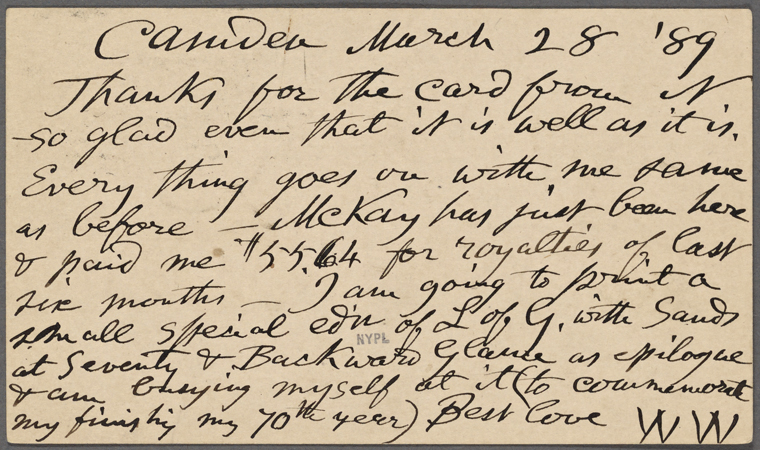 Camden March 28 '89
Thanks for the card from N
- so glad even that it is well as it is.
Every thing goes on with me same
as before — McKay has just been here
& paid me $55.64 for royalties of last
six months — I am going to print a
small special ed'n of L of G. with Sands
NYPL
at Seventy & Backward Glance as epilogue
& am busying myself at it (to commemorate
my finishing my 70th year) Best love WW